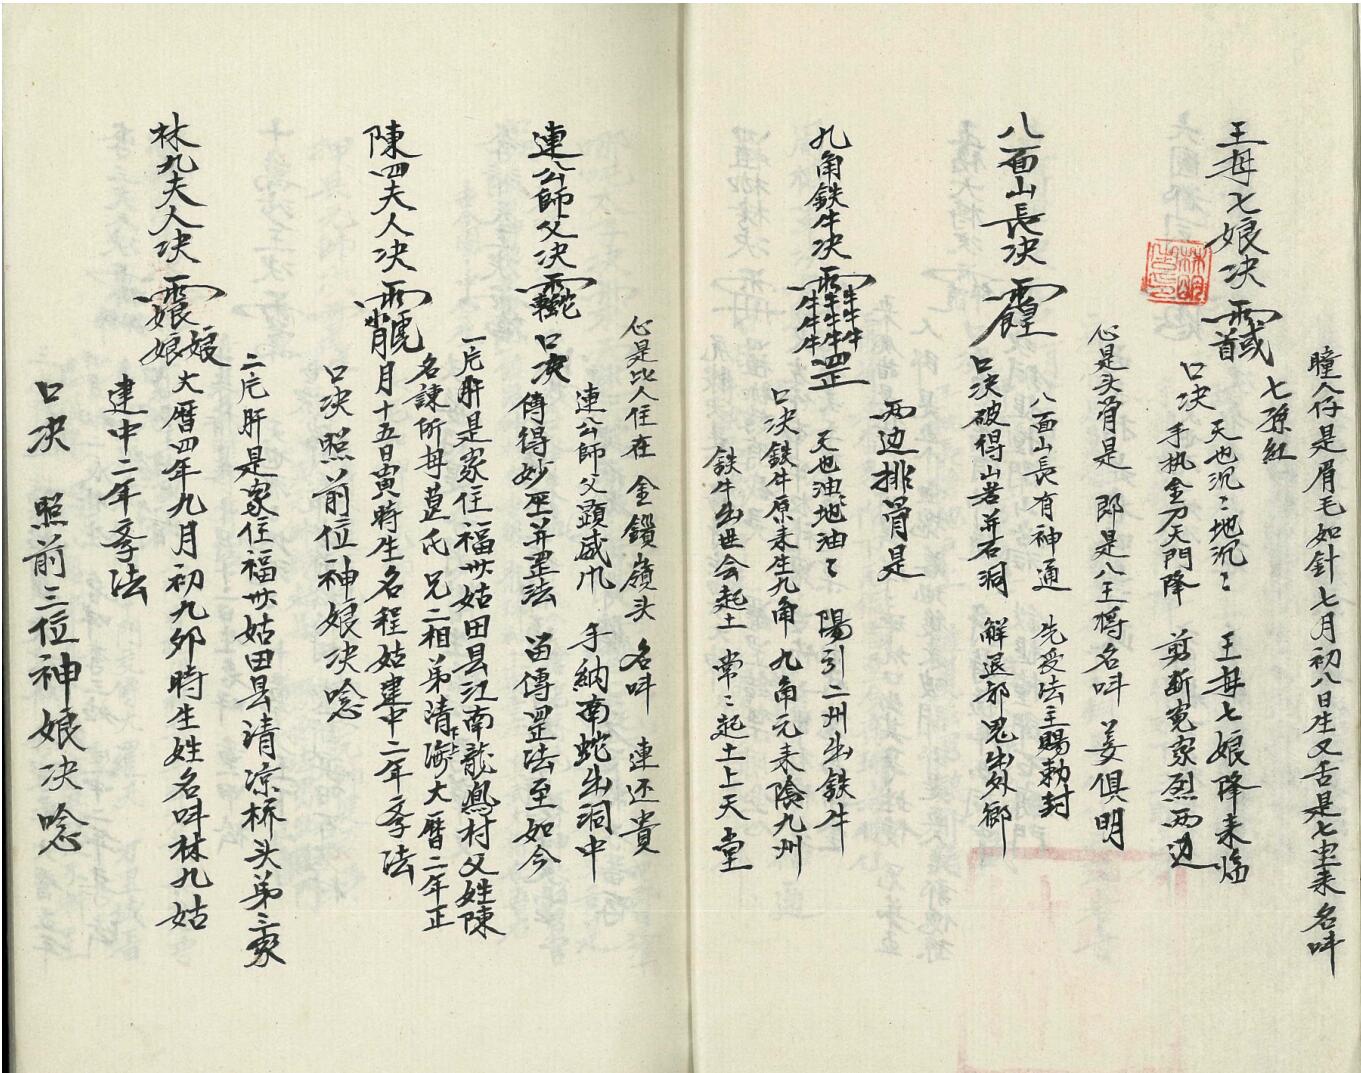 瞳人仔是眉毛如針七月初八日生又舌是七里来名呌
七孫紅
王母七娘决
口决
天也沉〻地沉〻 王母七娘降来临
手执金刀天門降 剪断寃家烈两边
心是头脊是 郎是八王將名呌 姜俱明
八面山長决
八面山長有神通 先受法主賜勅封
口决破得山岩并石洞 解退邪鬼出外鄉
两边排脊是
九角鉄牛决
天也油〻地油〻 陽引二州出鉄牛
口决鉄牛原来生九角 九角元来陰九州
鉄牛出世会起土 常〻起土上天堂
心是比人住在 金鎖嶺头 名呌 連还貴
連公師父决
口决
連公師父顕威灵 手納南蛇出洞中
傳得妙 并罡法 畄傳罡法至如今
一片肝是家住福州姑田县江南龍鳳村父姓陳
名諫所母葛氏 兄二相弟清海大暦二年正
陳四夫人决
月十五日寅時生名程姑建中二年孝法
口决 照前位神娘决唸
二片肝是家住福州姑田县清凉桥头弟三家
林九夫人决
大暦四年九月初九夘時生姓名呌林九姑
建中二年孝法
口决 照前三位神娘决唸